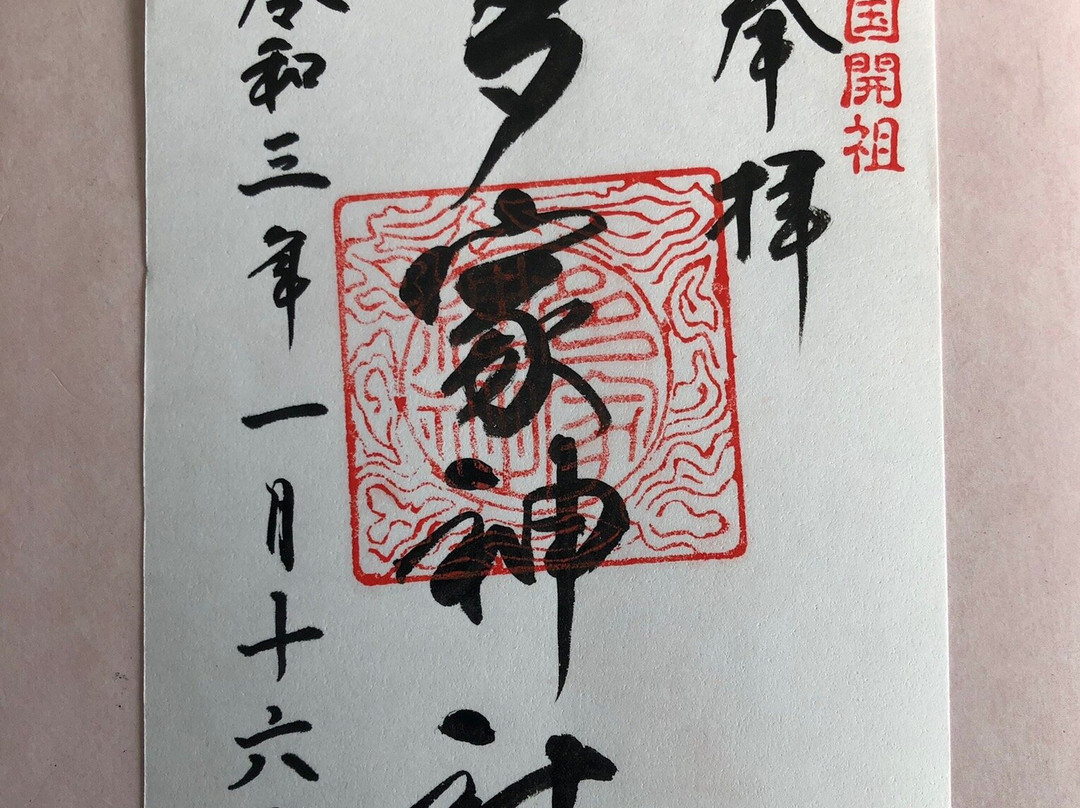 国開祖
奉拝
多家神社
令和三年一月十六